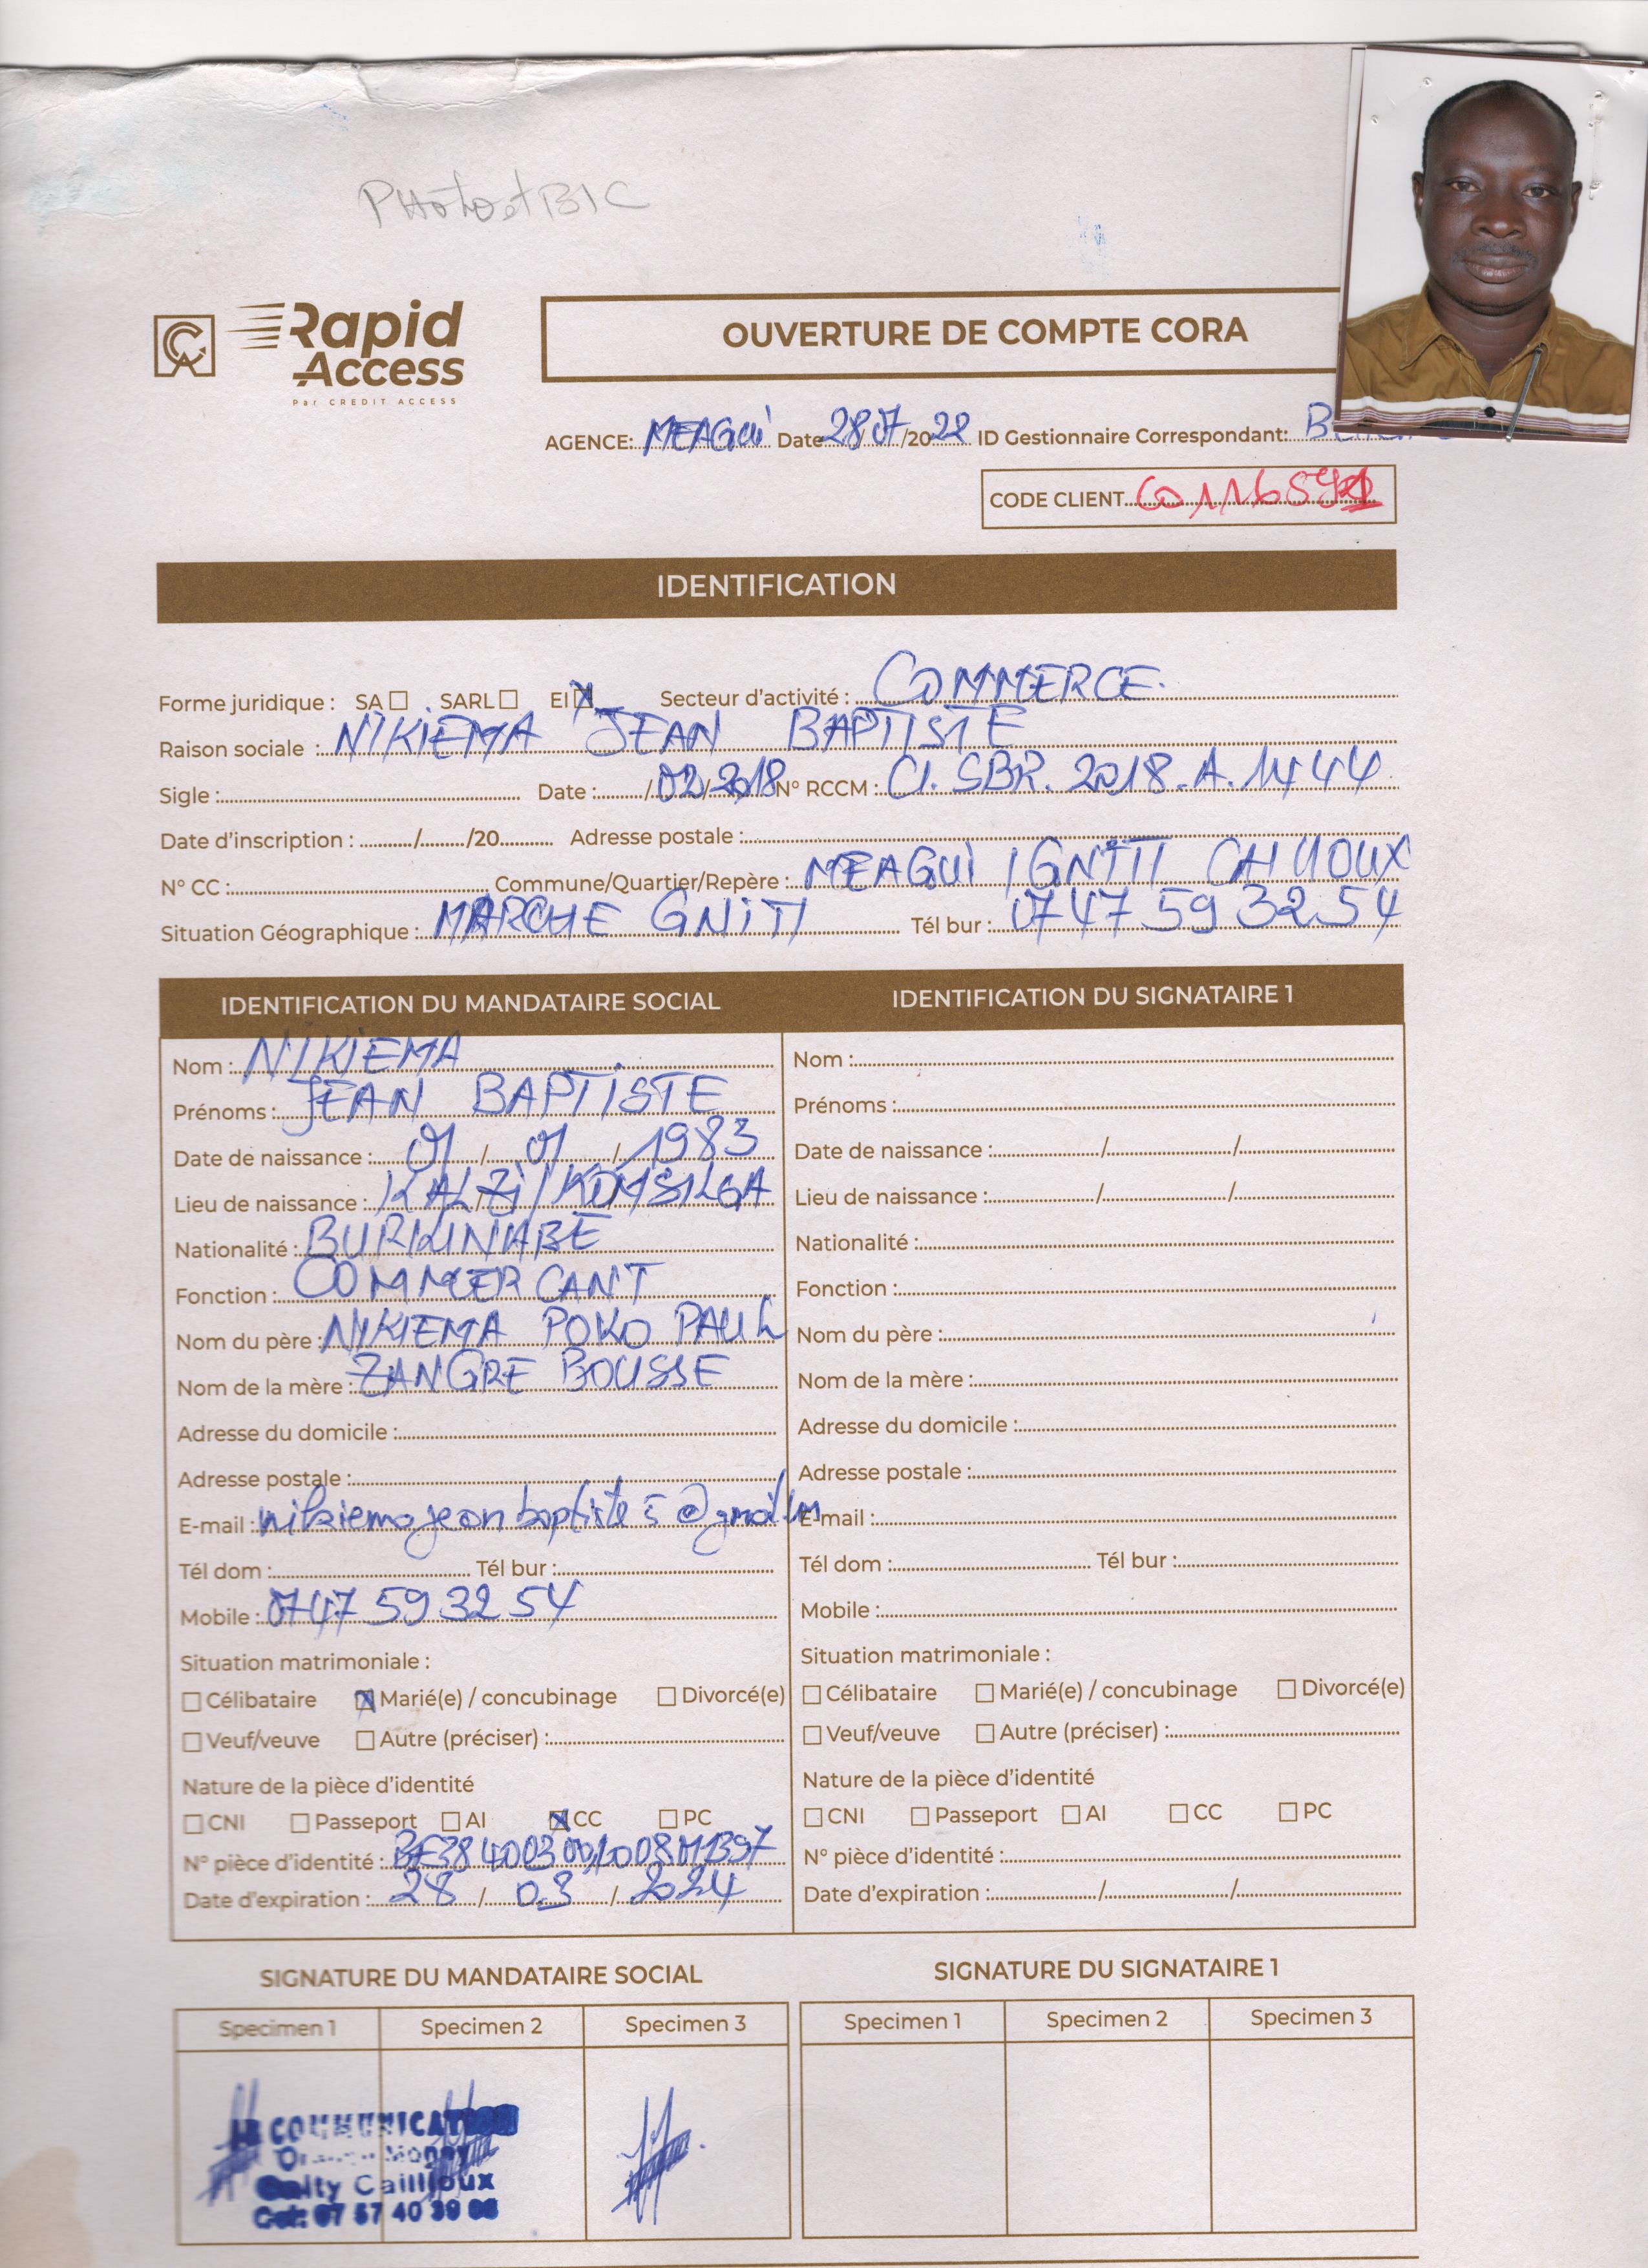 PHOTO et BIC
Rapid
Access
Par CREDIT ACCESS
OUVERTURE DE COMPTE CORA
AGENCE: MEAGUI Date 28 07/2022 ID Gestionnaire Correspondant:
CODE CLIENT
IDENTIFICATION
Forme juridique : SA ☐ SARL ☐ EI ☒ Secteur d'activité : COMMERCE
Raison sociale : NIKIEMA JEAN BAPTISTE
Sigle : Date : / 02/2018 N° RCCM : CI. SBR. 2018.A.1444
Date d'inscription : / /20 Adresse postale :
N° CC : Commune/Quartier/Repère : MEAGUI / GNITI
Situation Géographique : MARCHE GNITI Tél bur : 07 47 59 32 54
IDENTIFICATION DU MANDATAIRE SOCIAL
Nom : NIKIEMA
Prénoms : JEAN BAPTISTE
Date de naissance : 01 / 01 / 1983
Lieu de naissance : KALZI / KOMSILGA
Nationalité : BURKINABE
Fonction : COMMERCANT
Nom du père : NIKIEMA POKO PAUL
Nom de la mère : ZANGRE BOUSSE
Adresse du domicile :
Adresse postale :
E-mail : nikiemajeanbaptiste5@gmail
Tél dom : Tél bur :
Mobile : 07 47 59 32 54
Situation matrimoniale :
☐ Célibataire ☒ Marié(e) / concubinage ☐ Divorcé(e)
☐ Veuf/veuve ☐ Autre (préciser) :
Nature de la pièce d'identité
☐ CNI ☐ Passeport ☐ AI ☒ CC ☐ PC
N° pièce d'identité :
Date d'expiration : 28 / 03 / 2024
IDENTIFICATION DU SIGNATAIRE 1
Nom :
Prénoms :
Date de naissance : / /
Lieu de naissance : / /
Nationalité :
Fonction :
Nom du père :
Nom de la mère :
Adresse du domicile :
Adresse postale :
E-mail :
Tél dom : Tél bur :
Mobile :
Situation matrimoniale :
☐ Célibataire ☐ Marié(e) / concubinage ☐ Divorcé(e)
☐ Veuf/veuve ☐ Autre (préciser) :
Nature de la pièce d'identité
☐ CNI ☐ Passeport ☐ AI ☐ CC ☐ PC
N° pièce d'identité :
Date d'expiration : / /
SIGNATURE DU MANDATAIRE SOCIAL
Specimen 1 Specimen 2 Specimen 3
COMMUNICATION
Money
Caillioux
SIGNATURE DU SIGNATAIRE 1
Specimen 1 Specimen 2 Specimen 3